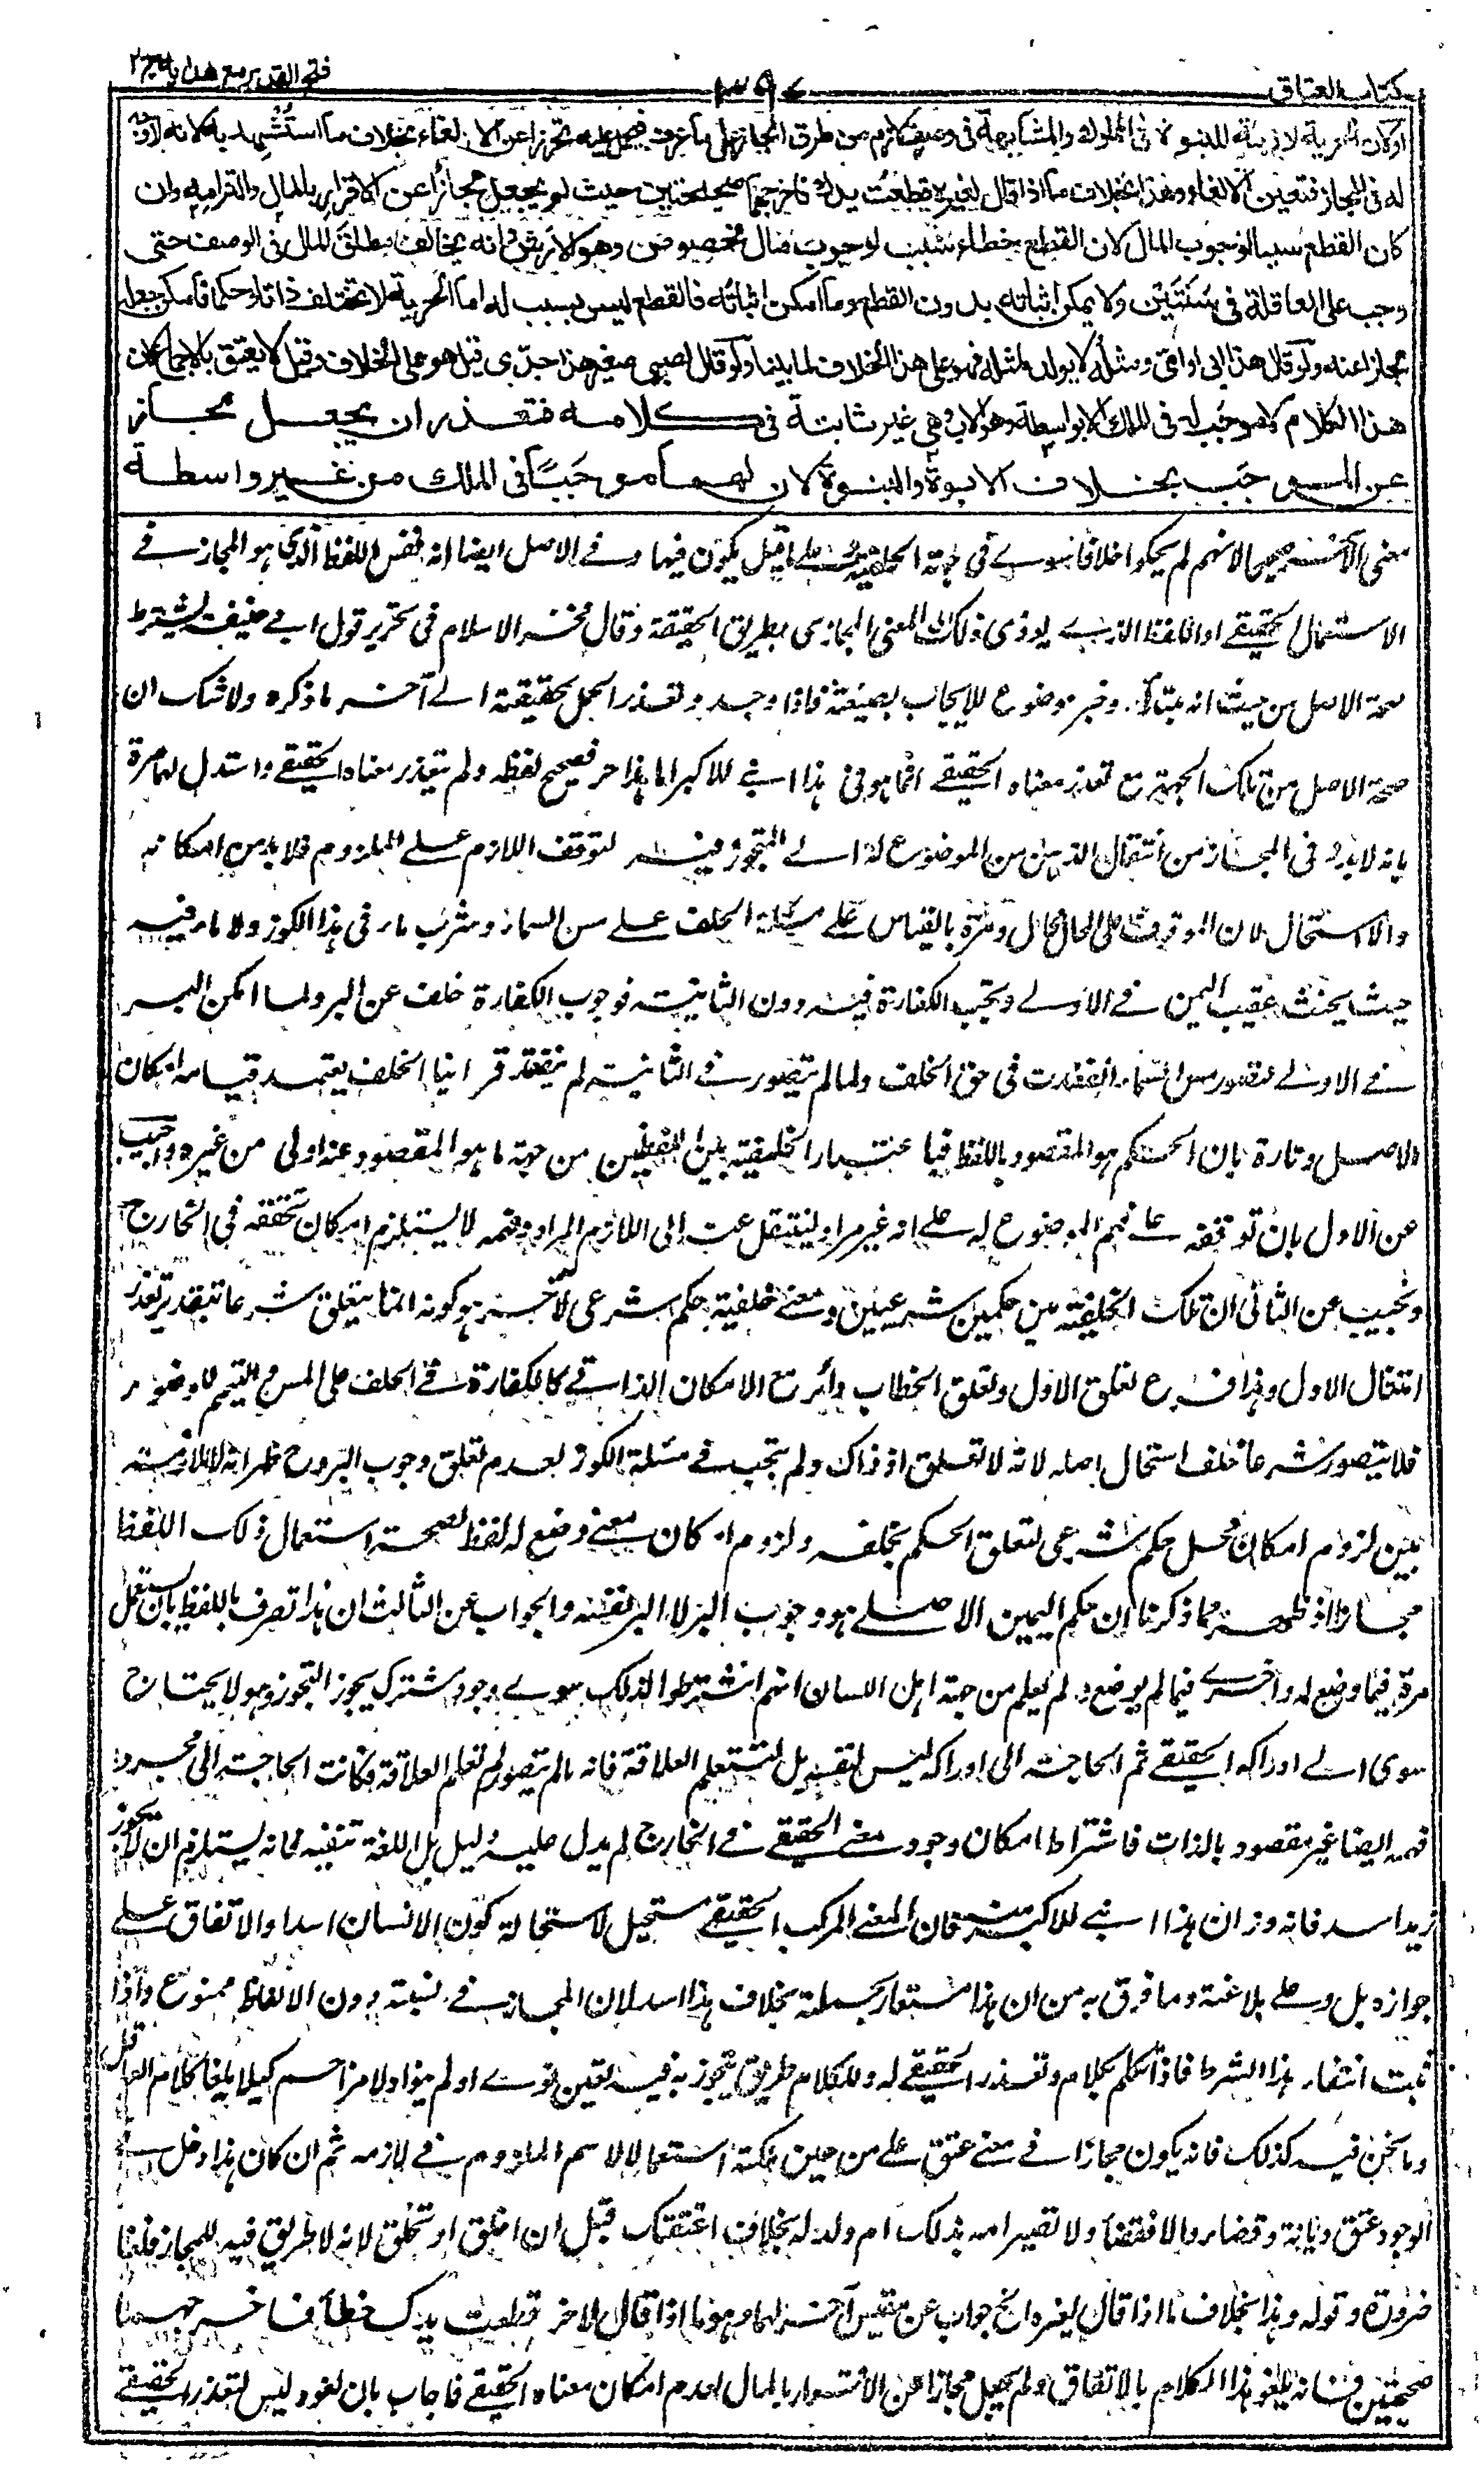 كتاب العتاق
فتح القدير مع هدايه ج ٢
اولان الحرية لازمة للبنوة فى المملوك والمشابهة فى وصف لازم من طرق المجاز على ما عرف فيحمل عليه تحرزا عن الالغاء بخلاف ما استشهد به لانه لا وجه
له فى المجاز فتعين الالغاء وهذا بخلاف ما اذا قال لغيره قطعت يدك فاخرجهما صحيحتين حيث لم يجعل مجازا عن الاقرار بالمال والتزامه وان
كان القطع سببا لوجوب المال لان القطع خطاء سبب لوجوب مال مخصوص وهو الارش وانه يخالف مطلق المال فى الوصف حتى
وجب على العاقلة فى سنتين ولا يمكن اثباته بدون القطع وما امكن اثباته فالقطع ليس بسبب له اما الحرية لا تختلف ذاتا وحكما فامكن جعله
مجازا عنه ولو قال هذا ابى او امى ومثله لا يولد لمثلهما فهو على هذا الخلاف لما بينا ولو قال لصبى صغير هذا جدى قيل هو على الخلاف وقيل لا يعتق بالاجماع لان
هذا الكلام لا موجب له فى الملك الا بواسطة وهو الاب وهى غير ثابتة فى كلامه فتعذر ان يجعل مجازا
عن الموجب بخلاف الابوة والبنوة لان لهما موجبا فى الملك من غير واسطة
معنى الآخر صحيحا لانهم لم يحكوا خلافا سوى فى جهة الخلفية قيل يكون فيها وفى الاصل ايضا انه نفس اللفظ الذى هو المجاز فى
الاستعمال الحقيقى او اللفظ الذى يؤدى ذلك المعنى المجازى بطريق الحقيقة وقال فخر الاسلام فى تحرير قول ابى حنيفة يشترط
صحة الاصل من حيث انه مبتدأ وخبر موضوع للايجاب بصيغته فاذا وجد وتعذر العمل بحقيقته الى آخر ما ذكره ولا شك ان
صحة الاصل من تلك الجهة مع تعذر معناه الحقيقى انما هو فى هذا ابنى للاكبر اما هذا حر فصحيح لفظه ولم يتعذر معناه الحقيقى واستدل لهما مرة
بانه لا بد فى المجاز من انتقال الذهن من الموضوع له الى المتجوز فيه لتوقف اللازم على الملزوم فلا بد من امكانه
والا استحال لان الموقوف على المحال محال ومرة بالقياس على مسئلة الحلف على مس السماء وشرب ماء فى هذا الكوز ولا ماء فيه
حيث يحنث عقيب اليمين فى الاولى وتجب الكفارة فيه دون الثانية فوجوب الكفارة خلف عن البر ولما امكن البر
فى الاولى لتصور مس السماء انعقدت فى حق الخلف ولما لم يتصور فى الثانية لم تنعقد الخلف يعتمد قيامه امكان
الاصل وتارة بان الحكم هو المقصود باللفظ فباعتبار الخلفية بين اللفظين من جهة ما هو المقصود عند اولى من غيره واجيب
عن الاول بان توقفه على فهم الموضوع له على انه غير مراد لينتقل عنه الى اللازم المراد وفهمه لا يستلزم امكان تحققه فى الخارج
ونجيب عن الثانى ان تلك الخلفية بين حكمين شرعيين ومعنى خلفية حكم شرعى لآخر هو كونه انما يتعلق شرعا بتقدير تعذر
امتثال الاول وهذا فرع تعلق الاول وتعلق الخطاب دائر مع الامكان الذاتى كالكفارة فى الحلف على المس والتيمم للوضوء
فلا يتصور شرعا خلف استحال اصله لانه لا تعلق اذ ذاك ولم تجب فى مسئلة الكوز لعدم تعلق وجوب البر وح ظهر انه لا ملازمة
بين لزوم امكان محل حكم شرعى لتعلق الحكم بخلفه ولزوم امكان معنى وضع له لفظ لصحة استعمال ذلك اللفظ
مجازا اذ ظهر مما ذكرنا ان حكم اليمين الاصلى هو وجوب البر لا البر نفسه والجواب عن الثالث ان هذا تصرف باللفظ بان يستعمل
مرة فيما وضع له واخرى فيما لم يوضع ولم يعلم من جهة اهل اللسان انهم اشترطوا لذلك سوى وجود مشترك يجوز التجوز وهو لا يحتاج
سوى الى ادراكه الحقيقى ثم الحاجة الى ادراكه ليس لنفسه بل لتعلم العلاقة فانه ما لم يتصور لم تعلم العلاقة فكانت الحاجة الى مجرد
فهمه ايضا غير مقصود بالذات فاشتراط امكان وجود معنى الحقيقى فى الخارج لم يدل عليه دليل بل اللغة تنفيه فانه يستلزم ان لا يجوز
زيد اسد فانه وزان هذا ابنى للاكبر منه فان المعنى المركب الحقيقى مستحيل لاستحالة كون الانسان اسدا والاتفاق على
جوازه بل وعلى بلاغته وما فرق به من ان هذا مستعار بجملته بخلاف هذا اسد لان المجاز فى نسبته دون الالفاظ ممنوع واذا
ثبت انتفاء هذا الشرط فاذا تكلم بكلام وتعذر الحقيقى له وللكلام طريق يتجوز به فيه تعين نوى او لم ينو اولا مزاحم كيلا يلغا كلام العاقل
وما نحن فيه كذلك فانه يكون مجازا فى معنى عتق على من حين ملكته استعمالا لاسم الملزوم فى لازمه ثم ان كان هذا دخل فى
الوجود عتق ديانة وقضاء والا فقضاء ولا تصير امه بذلك ام ولد له بخلاف اعتقتك قبل ان اخلق او تخلق لانه لا طريق فيه للمجاز فلغا
ضرورة وقوله وهذا بخلاف ما اذا قال لغيره الخ جواب عن مقيس آخر لهما وهو ما اذا قال لآخر قطعت يدك خطأ فاخرجهما
صحيحتين فانه يلغو هذا الكلام بالاتفاق ولم يجعل مجازا عن الاقرار بالمال لعدم امكان معناه الحقيقى فاجاب بان لغوه ليس لتعذر الحقيقى